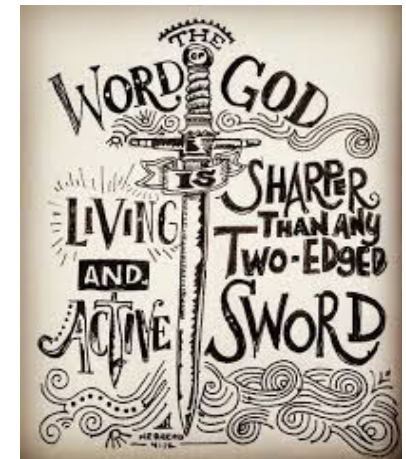 THE
WORD OF GOD
IS
LIVING
AND
ACTIVE
SHARPER
THAN ANY
TWO-EDGED
SWORD
HEBREWS
4:12